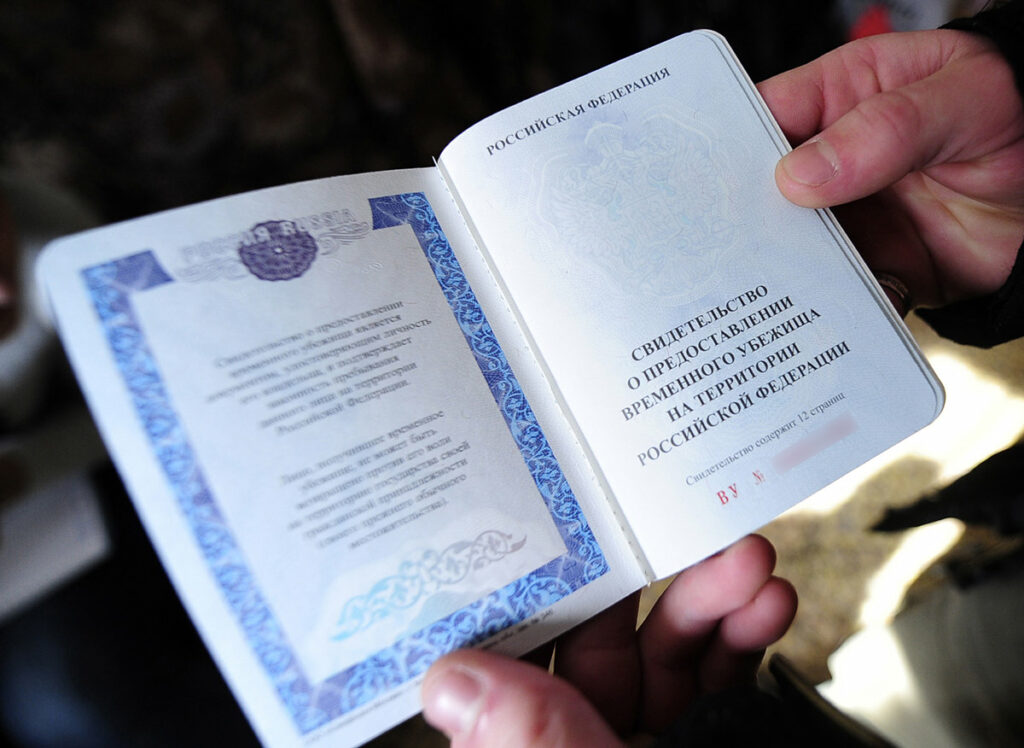 РОССИЯ RUSSIA
Свидетельство о предоставлении
временного убежища является
документом, удостоверяющим личность
его владельца, и подтверждает
законность пребывания
данного лица на территории
Российской Федерации.
Лицо, получившее временное
убежище, не может быть
возвращено против его воли
на территорию государства своей
гражданской принадлежности
(своего прежнего обычного
местожительства)
РОССИЙСКАЯ ФЕДЕРАЦИЯ
СВИДЕТЕЛЬСТВО
О ПРЕДОСТАВЛЕНИИ
ВРЕМЕННОГО УБЕЖИЩА
НА ТЕРРИТОРИИ
РОССИЙСКОЙ ФЕДЕРАЦИИ
Свидетельство содержит 12 страниц
ВУ №